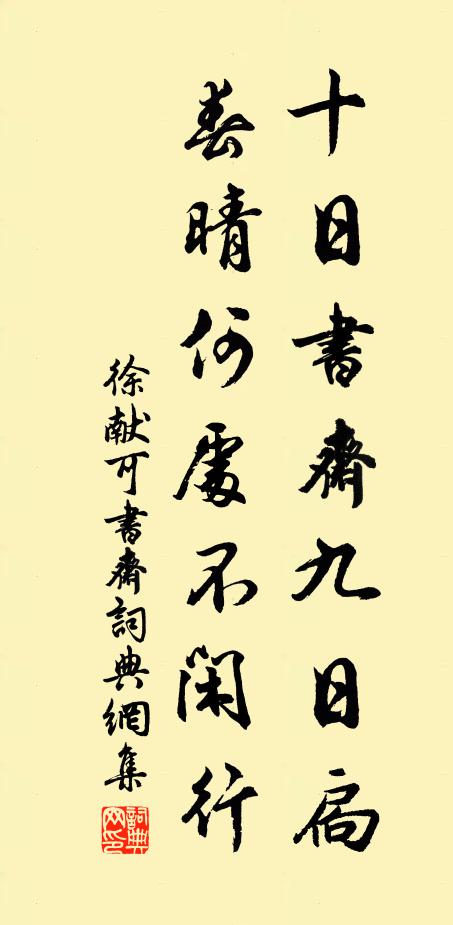 十日書齋九日扃
春晴何處不閑行
徐献可書齋詞典網集
詞典
网印